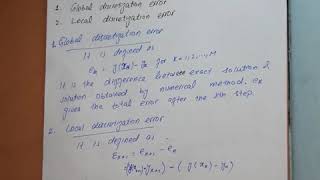 1. Global discretization error
2. Local discretization error
1. Global discretization error
It is defined as
eₖ = y(xₖ) - yₖ for k = 1, 2, ..., M
It is the difference between exact solution &
solution obtained by numerical method. eₖ
gives the total error after the kth step.
2. Local discretization error
It is defined as
Eₖ₊₁ = eₖ₊₁ - eₖ
(y(xₖ₊₁) - yₖ₊₁) - (y(xₖ) - yₖ)